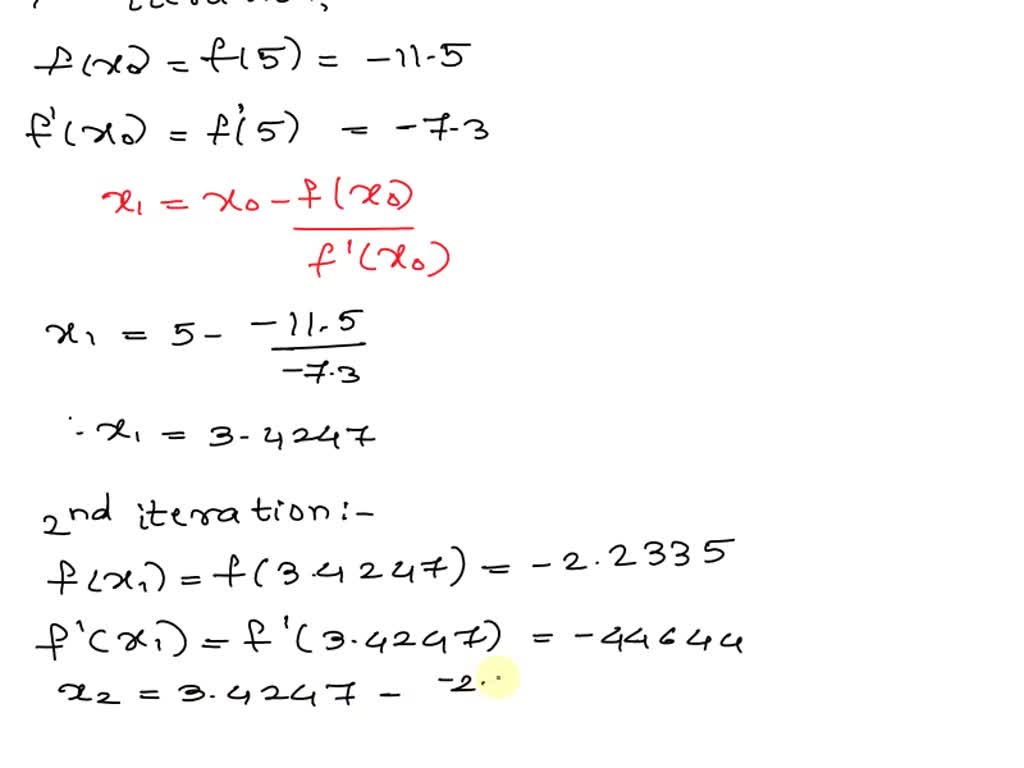 iteration,
f(x0) = f(5) = -11.5
f'(x0) = f'(5) = -7.3
x1 = x0 - f(x0)
f'(x0)
x1 = 5 - -11.5
-7.3
∴ x1 = 3.4247
2nd iteration:-
f(x1) = f(3.4247) = -2.2335
f'(x1) = f'(3.4247) = -44644
x2 = 3.4247 - -2.